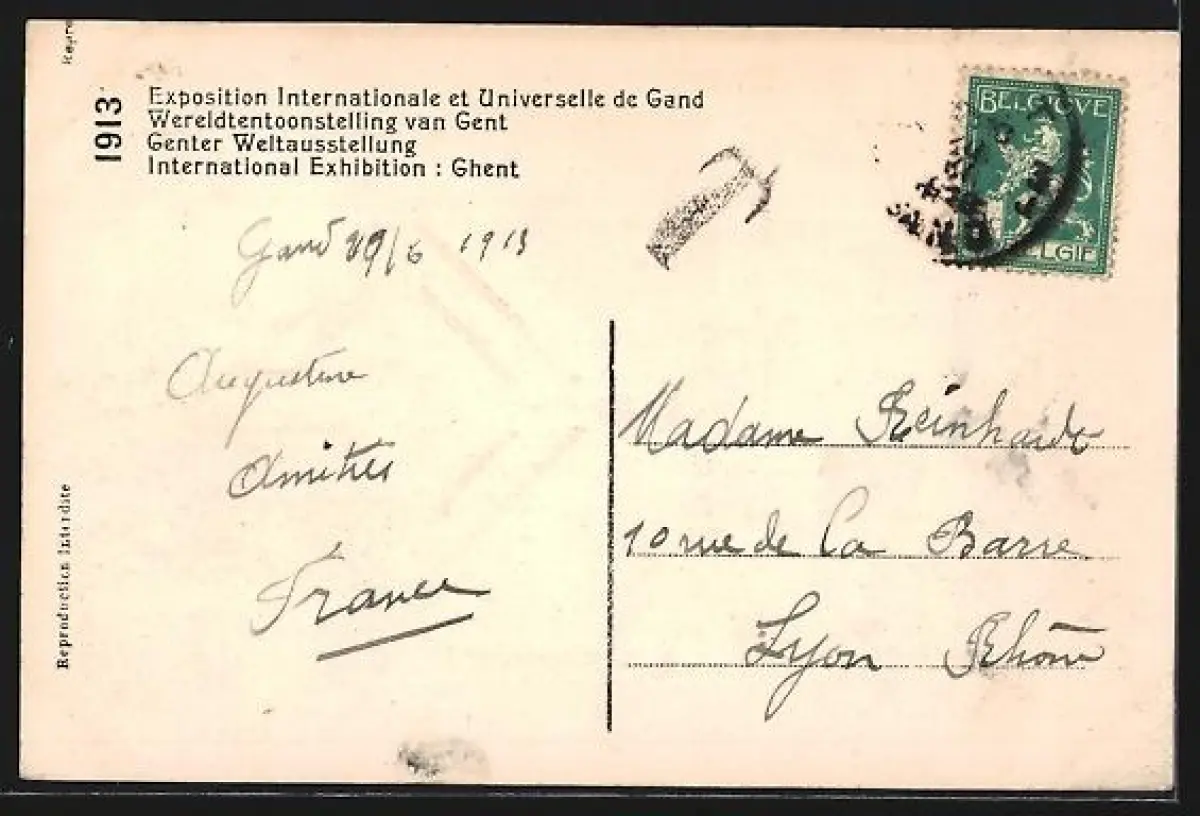 1913
Exposition Internationale et Universelle de Gand
Wereldtentoonstelling van Gent
Genter Weltausstellung
International Exhibition : Ghent
BELGIQUE
BELGIE
Gand 29/6 1913
Augustine
Amitiés
France
Madame Reinhardt
10 rue de La Barre
Lyon Rhône
Reproduction Interdite